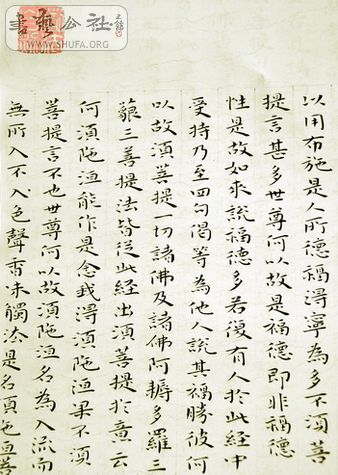 书艺公社
WWW.SHUFA.ORG
以用布施是人所德福得寧為多不湏菩
提言甚多世尊何以故是福德即非福德
性是故如来說福德多若復有人於此経中
受持乃至四句偈等為他人說其福勝彼何
以故湏菩提一切諸佛及諸佛阿耨多羅三
藐三菩提法皆從此経出湏菩提於意云
何湏陁洹能作是念我得湏陁洹果不湏
菩提言不也世尊何以故湏陁洹名為入流而
無所入不入色聲香味觸法是名湏陁洹菩